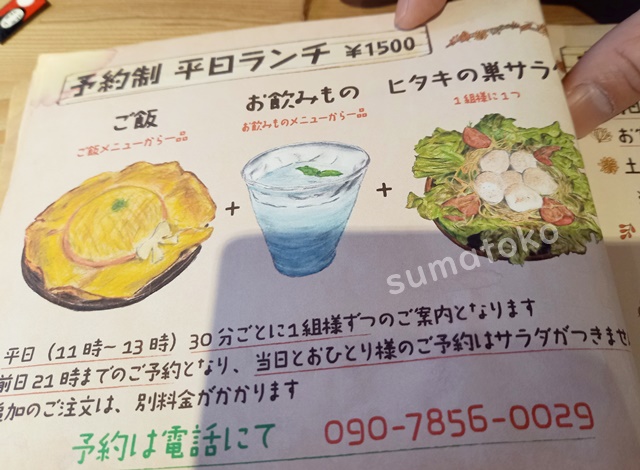 予約制 平日ランチ ¥1500
ご飯
ご飯メニューから一品
お飲みもの
お飲みものメニューから一品
ヒタキの巣サラ
1組様に1つ
+
+
sumatoko
平日(11時〜13時)30分ごとに1組様ずつのご案内となります
前日21時までのご予約となり、当日とおひとり様のご予約はサラダがつきませ
加のご注文は、別料金がかかります
予約は電話にて 090-7856-0029